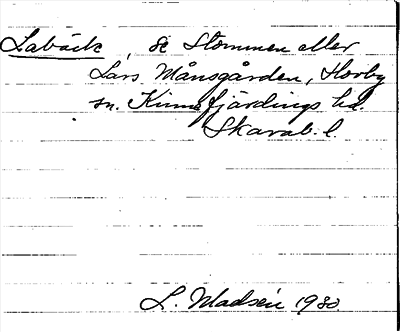 Labäck, se Stommen eller
Lars Månsgården, Horby
sn. Kinnefjärdings hd.
Skarab. l
L. Madsén 1930